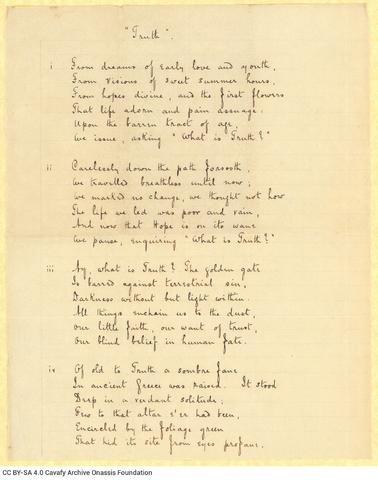 "Truth".
i From dreams of early love and youth,
From visions of sweet summer hours,
From hopes divine, and the first flowers
That life adorn and pain assuage:
Upon the barren tract of age,
We issue, asking "What is Truth?"
ii Carelessly down the path forsooth,
We travelled breathless until now;
We marked no change, we thought not how
The life we led was poor and vain,
And now that Hope is on its wane
We pause, enquiring "What is Truth?"
iii Ay, what is Truth? The golden gate
Is barred against terrestrial sin,
Darkness without but light within.
All things enchain us to the dust,
Our little faith, our want of trust,
Our blind belief in human fate.
iv Of old to Truth a sombre fane
In ancient Greece was raised. It stood
Deep in a verdant solitude;
Few to that altar e'er had been,
Encircled by the foliage green
That hid its site from eyes profane.
CC BY-SA 4.0 Cavafy Archive Onassis Foundation